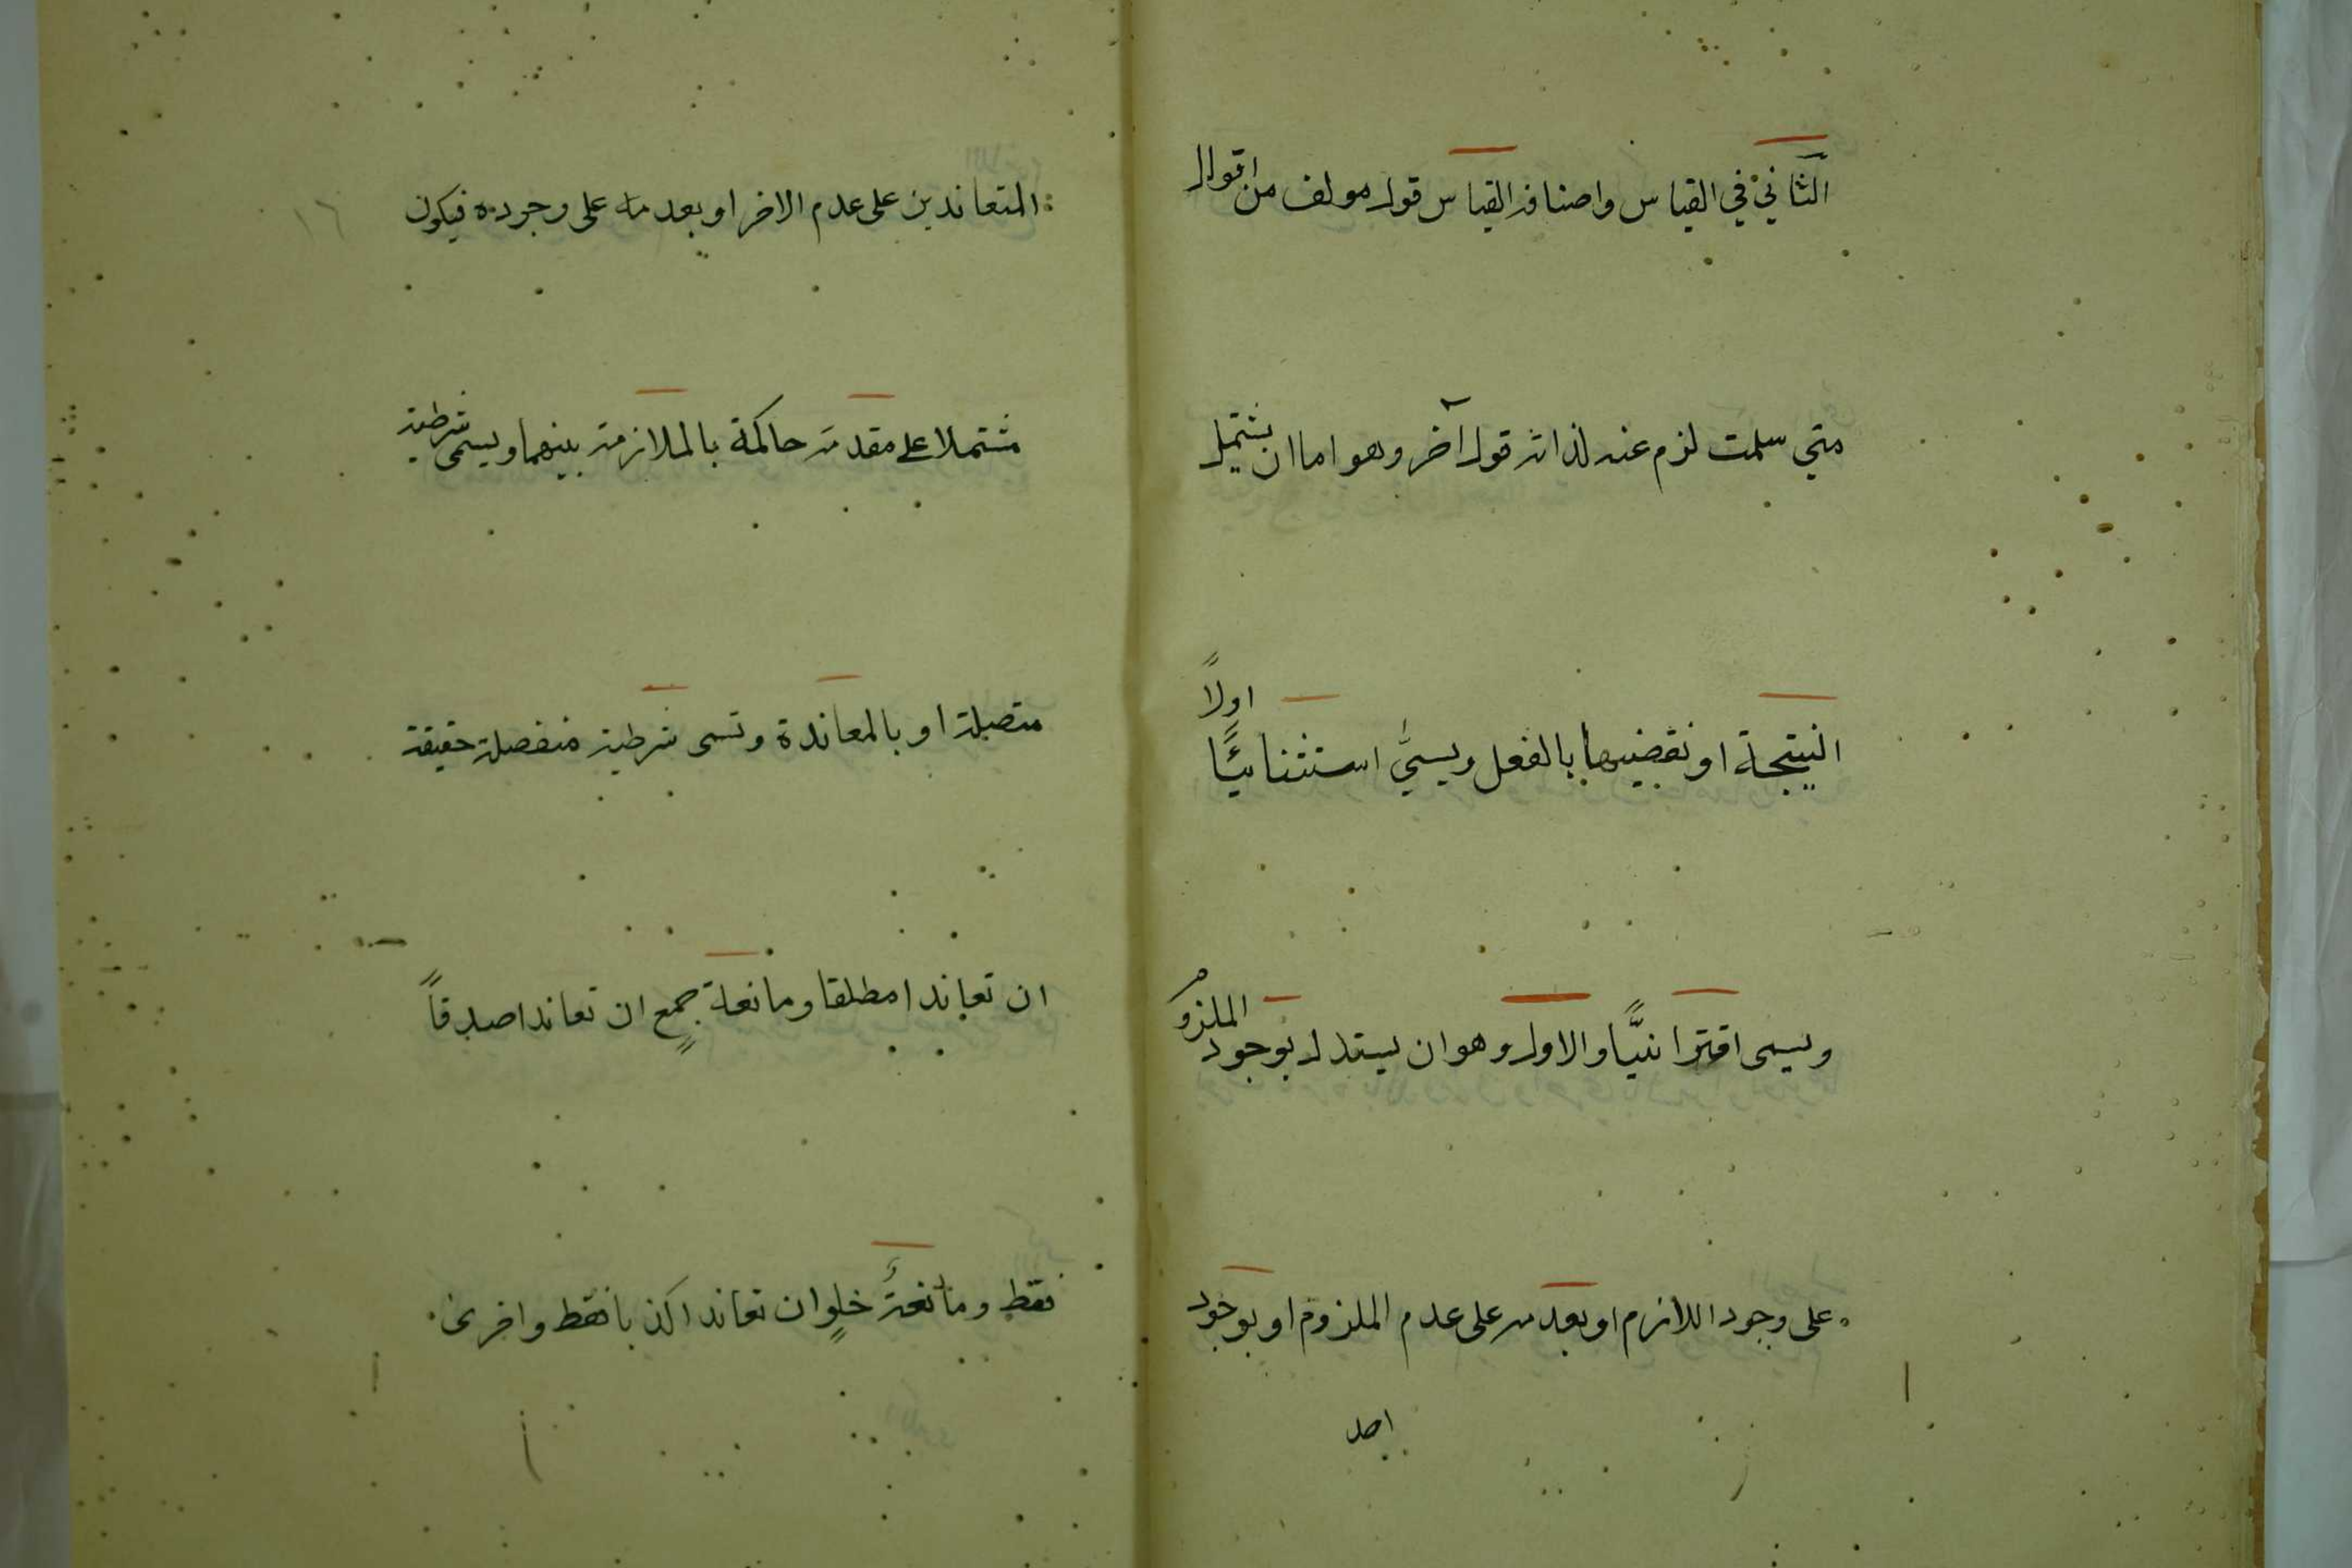 الثاني في القياس واصنافه القياس قول مولف من اقوال
متي سلمت لزم عنه لذاته قول آخر وهو اما ان يشتمل
النتيجة او نقيضها بالفعل ويسمَّي استثنائيًا اولاً
ويسمى اقترانيًّا والاول وهو ان يستدل بوجود الملزوم
على وجود اللازم او بعدمه على عدم الملزوم او بوجود
احد
المتعاندين على عدم الاخر او بعدمه على وجوده فيكون
١٦
مشتملا على مقدمة حاكمة بالملازمة بينهما ويسمى شرطية
متصلة او بالمعاندة وتسمى شرطية منفصلة حقيقة
ان تعاندا مطلقا ومانعة جمعٍ ان تعاندا صدقاً
فقط ومانعةُ خلوٍ ان تعاندا كذبا فقط واخرى